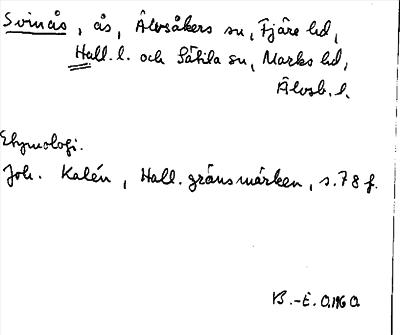 Svinås, ås, Älvsåkers sn, Fjäre hd,
Hall. l. och Sätila sn, Marks hd,
Älvsb. l.
Etymologi.
Joh. Kalén, Hall. gränsmärken, s. 78 f.
B.-E.